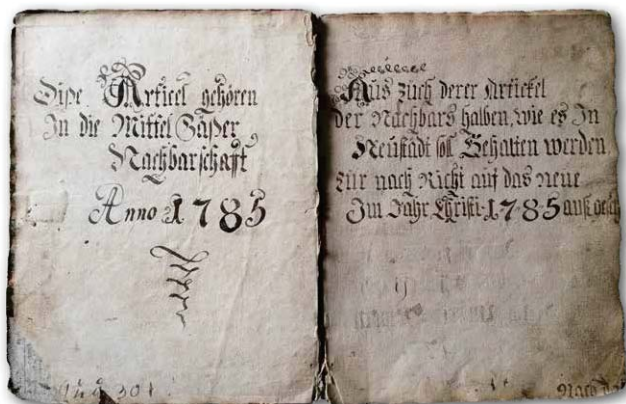 Diße Articel gehören
In die Mittel Gäßer
Nachbarschafft
Anno 1785
Aus zuch derer Artickel
der Nachbars halben, wie es In
Neustadt soll Gehalten werden
zur nach Richt auf das neue
Im Jahr Christi 1785 auß